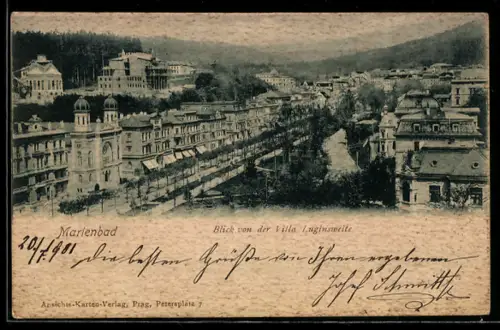 Marienbad
Blick von der Villa Luginsweite
20/7.1901 die besten Grüße von Ihrem ergebenen
Josef Schmitt
Ansichts-Karten-Verlag, Prag, Petersplatz 7